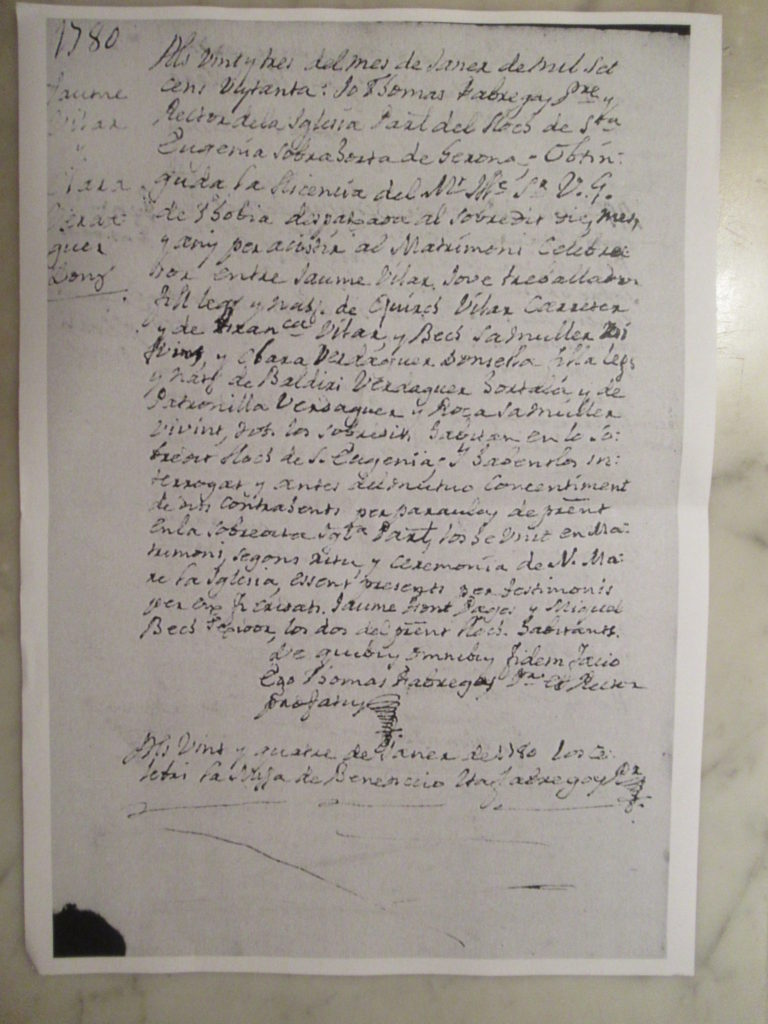 1780
Jaume
Vilar
y
Clara
Verda
guer
Donz.
Als Vint y tres del mes de Janer de mil set
cens Vuytanta: Jo Thomas Fabregas Pre. y
Rector de la Iglesia Parl. del Lloch de Sta.
Eugenia sobra Horta de Gerona, Obtin:
guda la llicencia del Mt. Itte. Sr. V. G.
de Thobia despatxada al sobredit die, mes,
y any per acistir al Matrimoni Celebra
dor entre Jaume Vilar, Jove treballador
fill legm. y natl. de Quirch Vilar Carreter
y de Francca. Vilar, y Bech sa muller
Vivints, y Clara Verdaguer Donsella filla legm.
y natl. de Baldiri Verdaguer hortalá, y de
Patronilla Verdaguer y Roça sa muller
vivint, tots los sobredits habitan en lo so:
bredit lloch de S. Eugenia; Y havenlos in:
terrogat y antes del mutuo Concentiment
de dits contrahents per paraulas de prent
en la sobredita Igla. Parl, los he Unit en Ma:
trimoni, segons ritu, y ceremonia de N. Ma:
re la Iglesia, essent presents per testimonis
per est. fi cridats. Jaume Font Pages y Miquel
Bech Texidor, los dos del prent lloch habitants.
De quibus omnibus fidem facio
Ego Thomas Fabregas Pr. et Rector
profatus
Als Vint y quatre de Janer de 1780 los ce:
lebri la Missa de Benediccio Ita Fabregas Pr.